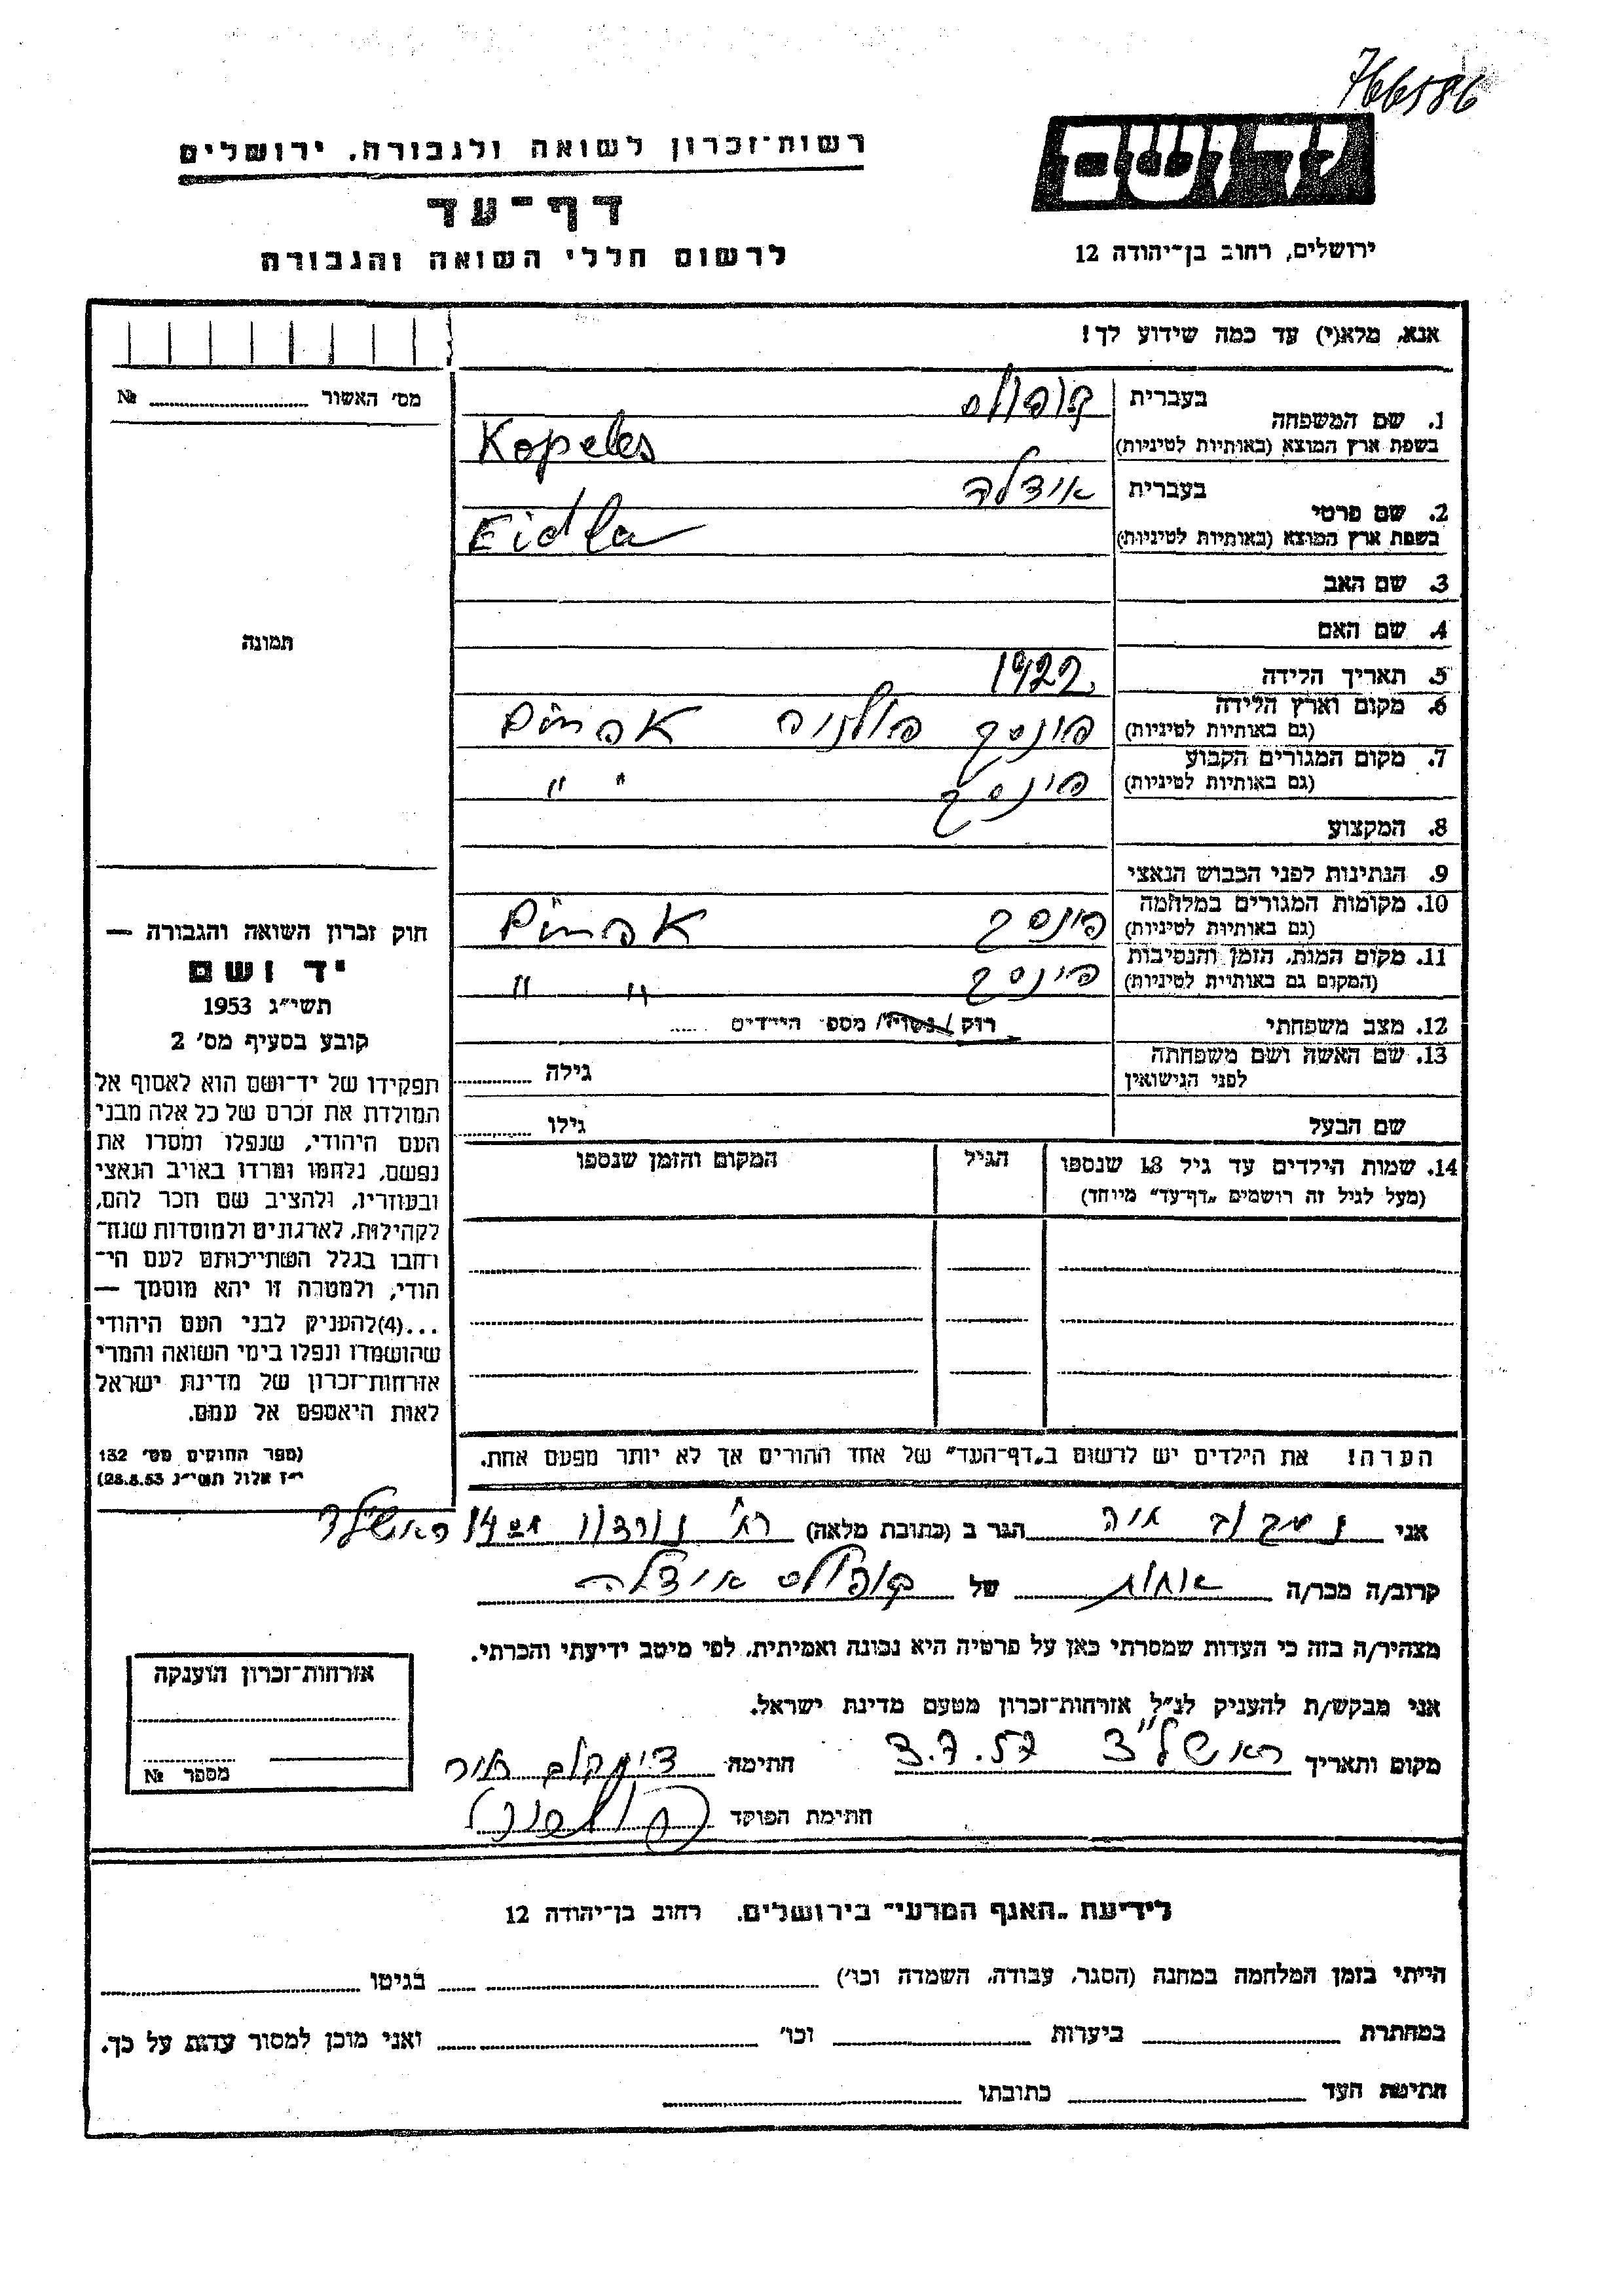 766586
יד ושם
רשות־זכרון לשואה ולגבורה. ירושלים
דף־עד
לרשום חללי השואה והגבורה
ירושלים, רחוב בן־יהודה 12
אנא, מלא(י) עד כמה שידוע לך!
מס׳ האשור № 
1. שם המשפחה
בעברית
קופולס
בשפת ארץ המוצא (באותיות לטיניות)
Kopeles
2. שם פרטי
בעברית
אידלה
בשפת ארץ המוצא (באותיות לטיניות)
Eidla
3. שם האב
4. שם האם
5. תאריך הלידה 1922
6. מקום וארץ הלידה
(גם באותיות לטיניות)
פינסק פולניה
7. מקום המגורים הקבוע
(גם באותיות לטיניות)
פינסק " "
8. המקצוע
9. הנתינות לפני הכבוש הנאצי
10. מקומות המגורים במלחמה
(גם באותיות לטיניות)
פינסק
11. מקום המות, הזמן והנסיבות
(המקום גם באותיות לטיניות)
פינסק " "
12. מצב משפחתי רוק / נשוי / מספר הילדים .....
13. שם האשה ושם משפחתה
לפני הנישואין
גילה
שם הבעל גילו
14. שמות הילדים עד גיל 18 שנספו
(מעל לגיל זה רושמים „דף־עד״ מיוחד)
הגיל
המקום והזמן שנספו
הערה! את הילדים יש לרשום ב„דף־העד״ של אחד ההורים אך לא יותר מפעם אחת.
תמונה
חוק זכרון השואה והגבורה —
יד ושם
תשי״ג 1953
קובע בסעיף מס׳ 2
תפקידו של יד־ושם הוא לאסוף אל
המולדת את זכרם של כל אלה מבני
העם היהודי, שנפלו ומסרו את
נפשם, נלחמו ומרדו באויב הנאצי
ובעוזריו, ולהציב שם וזכר להם,
לקהילות, לארגונים ולמוסדות שנח־
רבו בגלל השתייכותם לעם הי־
הודי, ולמטרה זו יהא מוסמך —
...(4)להעניק לבני העם היהודי
שהושמדו ונפלו בימי השואה והמרי
אזרחות־זכרון של מדינת ישראל
לאות היאספם אל עמם.
(ספר החוקים מס׳ 132
י״ז אלול תשי״ג 28.8.53)
אני הגר ב (כתובת מלאה) רח׳
קרוב/ה מכר/ה אחות של קופולס אידלה
מצהיר/ה בזה כי העדות שמסרתי כאן על פרטיה היא נכונה ואמיתית, לפי מיטב ידיעתי והכרתי.
אני מבקש/ת להעניק לנ״ל אזרחות־זכרון מטעם מדינת ישראל.
מקום ותאריך ראשל״צ 3.7.57 חתימה
חתימת הפוקד
אזרחות־זכרון הוענקה
מספר №
לידיעת „האגף המדעי״ בירושלים. רחוב בן־יהודה 12
הייתי בזמן המלחמה במחנה (הסגר, עבודה, השמדה וכו׳) בגיטו
במחתרת ביערות וכו׳ ואני מוכן למסור עדות על כך.
חתימת העד כתובתו